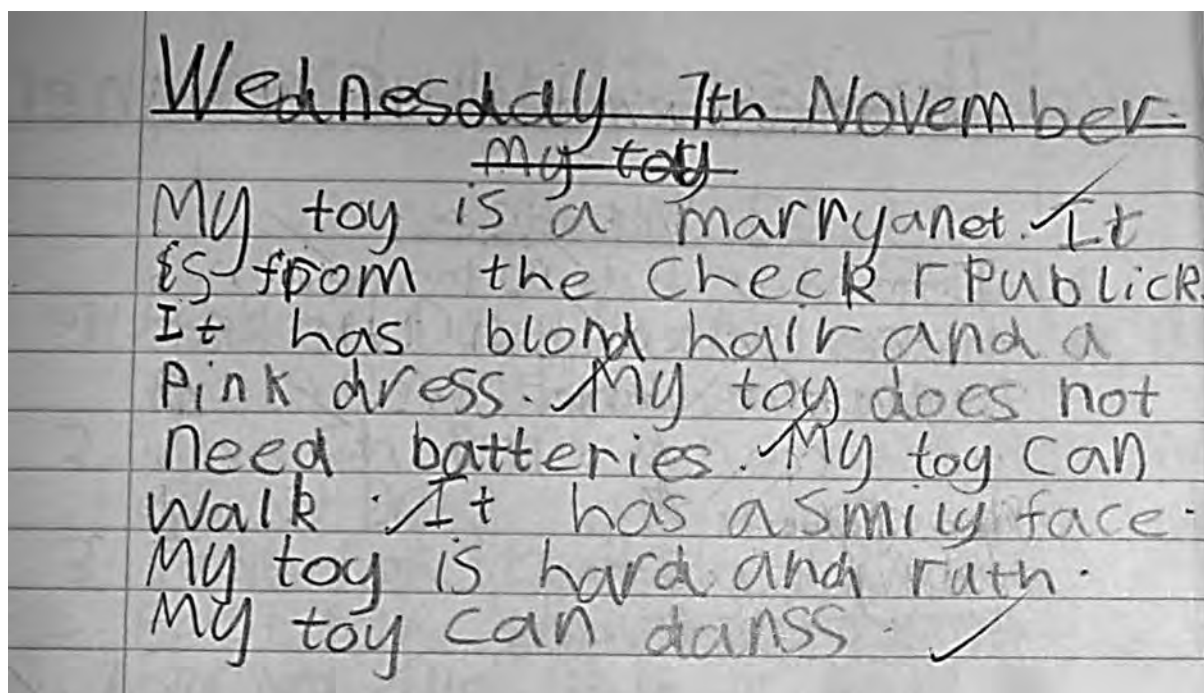 Wednesday 7th November.
My toy
My toy is a marryanet. It
is from the Check rPublick
It has blond hair and a
Pink dress. My toy does not
need batteries. My toy can
walk. It has a smily face.
My toy is hard and ruth.
My toy can danss.